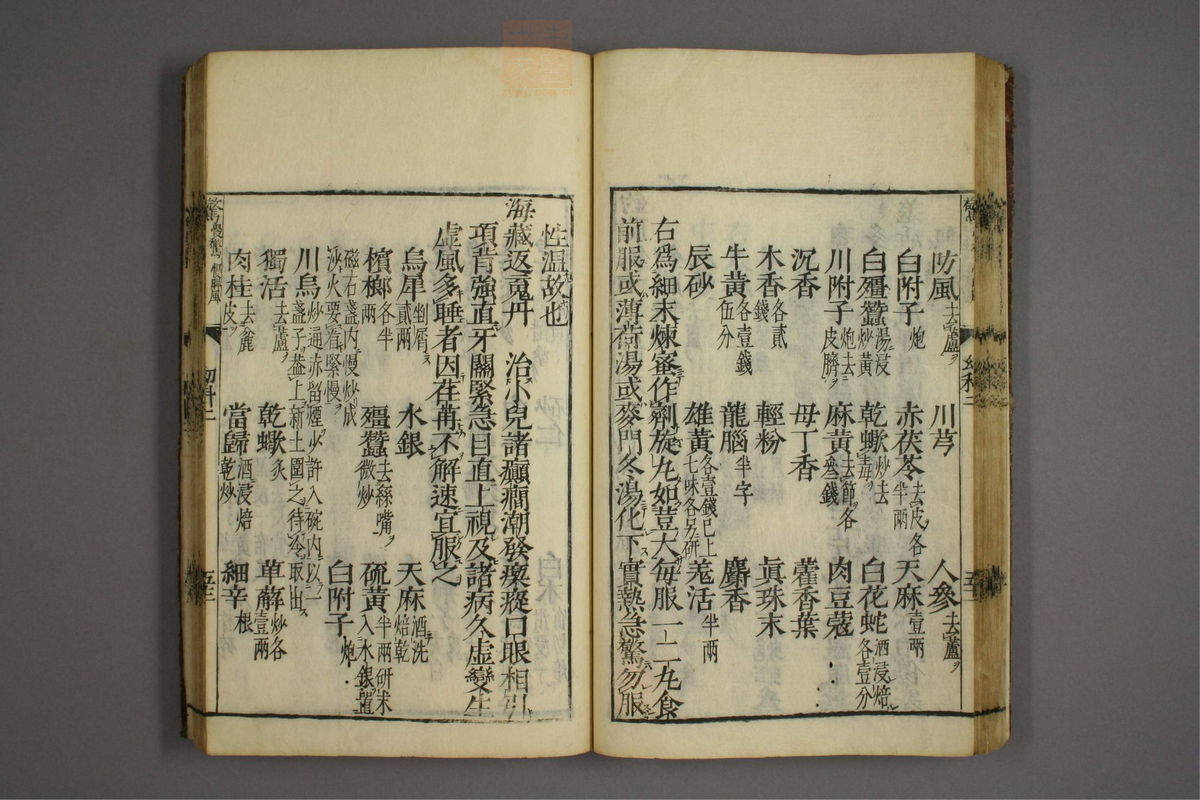 防風去蘆ヲ 川芎 人參去蘆ヲ
白附子炮 赤茯苓去皮各半兩 天麻壹兩
白殭蠶湯浸炒黃 乾蠍炒去毒ヲ 白花蛇酒浸焙各壹分
川附子炮去皮臍ヲ 麻黃去節ヲ各叄錢 肉豆蔻
沉香 母丁香 藿香葉
木香各貳錢 輕粉 眞珠末
牛黃各壹錢伍分 龍腦半字 麝香
辰砂 雄黃各壹錢已上七味各另研 羗活半兩
右爲細末煉蜜作劑旋丸如荳大每服一二丸食
前服或薄荷湯或麥門冬湯化下實熱急驚勿服
性温故也
海藏返䰟丹 治小兒諸癲癎潮發瘈瘲口眼相引
項背強直牙關緊急目直上視及諸病久虛變生
虛風多睡者因荏苒不解速宜服之
烏犀剉屑貳兩 水銀 天麻酒洗焙乾
檳榔各半兩 殭蠶去絲嘴ヲ微炒 硫黃半兩研末入水銀置
磁石盞內慢炒成
泌火要看緊慢ヲ 白附子炮
川烏炒通赤留煙少許入碗內以二盞子盖上新土圍之待冷取出
獨活去蘆ヲ 乾蠍炙 萆薢炒各壹兩
肉桂去麄皮ヲ 當歸酒浸焙乾炒 細辛根
幼科二
五三